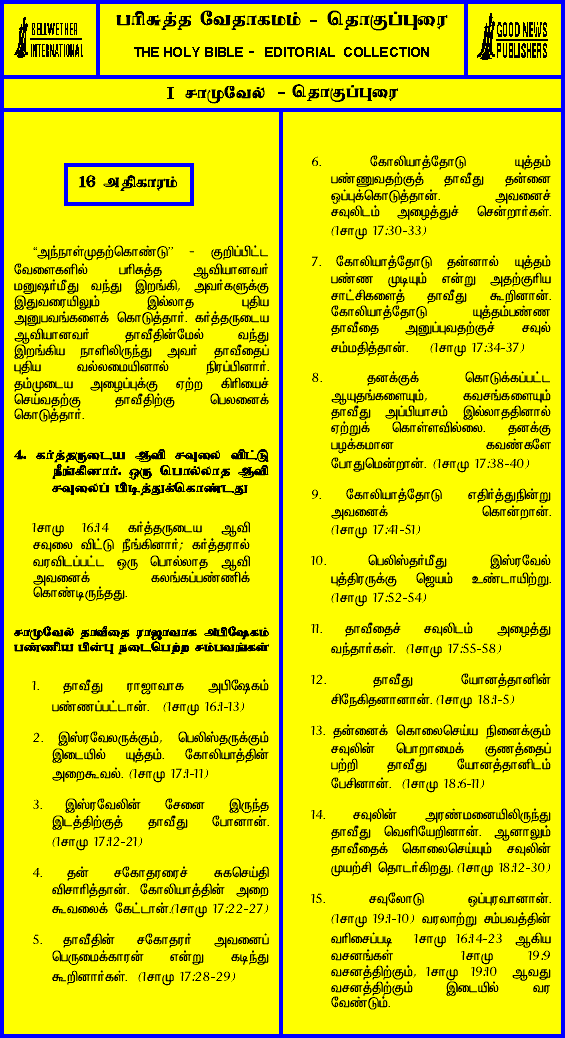 BELLWETHER
INTERNATIONAL
பரிசுத்த வேதாகமம் - தொகுப்புரை
THE HOLY BIBLE - EDITORIAL COLLECTION
GOOD NEWS
PUBLISHERS
I சாமுவேல் - தொகுப்புரை
16 அதிகாரம்
“அந்நாள்முதற்கொண்டு’’ - குறிப்பிட்ட
வேளைகளில் பரிசுத்த ஆவியானவர்
மனுஷர்மீது வந்து இறங்கி, அவர்களுக்கு
இதுவரையிலும் இல்லாத புதிய
அனுபவங்களைக் கொடுத்தார். கர்த்தருடைய
ஆவியானவர் தாவீதின்மேல் வந்து
இறங்கிய நாளிலிருந்து அவர் தாவீதைப்
புதிய வல்லமையினால் நிரப்பினார்.
தம்முடைய அழைப்புக்கு ஏற்ற கிரியைச்
செய்வதற்கு தாவீதிற்கு பெலனைக்
கொடுத்தார்.
4. கர்த்தருடைய ஆவி சவுலை விட்டு
நீங்கினார். ஒரு பொல்லாத ஆவி
சவுலைப் பிடித்துக்கொண்டது
1சாமு 16:14 கர்த்தருடைய ஆவி
சவுலை விட்டு நீங்கினார்; கர்த்தரால்
வரவிடப்பட்ட ஒரு பொல்லாத ஆவி
அவனைக் கலங்கப்பண்ணிக்
கொண்டிருந்தது.
சாமுவேல் தாவீதை ராஜாவாக அபிஷேகம்
பண்ணிய பின்பு நடைபெற்ற சம்பவங்கள்
1. தாவீது ராஜாவாக அபிஷேகம்
பண்ணப்பட்டான். (1சாமு 16:1-13)
2. இஸ்ரவேலருக்கும், பெலிஸ்தருக்கும்
இடையில் யுத்தம். கோலியாத்தின்
அறைகூவல். (1சாமு 17:1-11)
3. இஸ்ரவேலின் சேனை இருந்த
இடத்திற்குத் தாவீது போனான்.
(1சாமு 17:12-21)
4. தன் சகோதரரைச் சுகசெய்தி
விசாரித்தான். கோலியாத்தின் அறை
கூவலைக் கேட்டான்.(1சாமு 17:22-27)
5. தாவீதின் சகோதரர் அவனைப்
பெருமைக்காரன் என்று கடிந்து
கூறினார்கள். (1சாமு 17:28-29)
6. கோலியாத்தோடு யுத்தம்
பண்ணுவதற்குத் தாவீது தன்னை
ஒப்புக்கொடுத்தான். அவனைச்
சவுலிடம் அழைத்துச் சென்றார்கள்.
(1சாமு 17:30-33)
7. கோலியாத்தோடு தன்னால் யுத்தம்
பண்ண முடியும் என்று அதற்குரிய
சாட்சிகளைத் தாவீது கூறினான்.
கோலியாத்தோடு யுத்தம்பண்ண
தாவீதை அனுப்புவதற்குச் சவுல்
சம்மதித்தான். (1சாமு 17:34-37)
8. தனக்குக் கொடுக்கப்பட்ட
ஆயுதங்களையும், கவசங்களையும்
தாவீது அப்பியாசம் இல்லாததினால்
ஏற்றுக் கொள்ளவில்லை. தனக்கு
பழக்கமான கவண்களே
போதுமென்றான். (1சாமு 17:38-40)
9. கோலியாத்தோடு எதிர்த்துநின்று
அவனைக் கொன்றான்.
(1சாமு 17:41-51)
10. பெலிஸ்தர்மீது இஸ்ரவேல்
புத்திரருக்கு ஜெயம் உண்டாயிற்று.
(1சாமு 17:52-54)
11. தாவீதைச் சவுலிடம் அழைத்து
வந்தார்கள். (1சாமு 17:55-58)
12. தாவீது யோனத்தானின்
சிநேகிதனானான். (1சாமு 18:1-5)
13. தன்னைக் கொலைசெய்ய நினைக்கும்
சவுலின் பொறாமைக் குணத்தைப்
பற்றி தாவீது யோனத்தானிடம்
பேசினான். (1சாமு 18:6-11)
14. சவுலின் அரண்மனையிலிருந்து
தாவீது வெளியேறினான். ஆனாலும்
தாவீதைக் கொலைசெய்யும் சவுலின்
முயற்சி தொடர்கிறது. (1சாமு 18:12-30)
15. சவுலோடு ஒப்புரவானான்.
(1சாமு 19:1-10) வரலாற்று சம்பவத்தின்
வரிசைப்படி 1சாமு 16:14-23 ஆகிய
வசனங்கள் 1சாமு 19:9
வசனத்திற்கும், 1சாமு 19:10 ஆவது
வசனத்திற்கும் இடையில் வர
வேண்டும்.